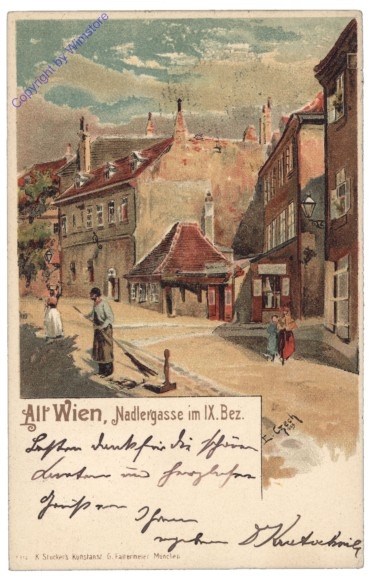 Copyright by Winstore
Alt Wien, Nadlergasse im IX. Bez.
E. Czech
Besten Dank für die schönen
Karten und herzlichen
Grüßen von Ihrem
ergebenen
K. Stücker's Kunstanst. G. Faltermeier, München